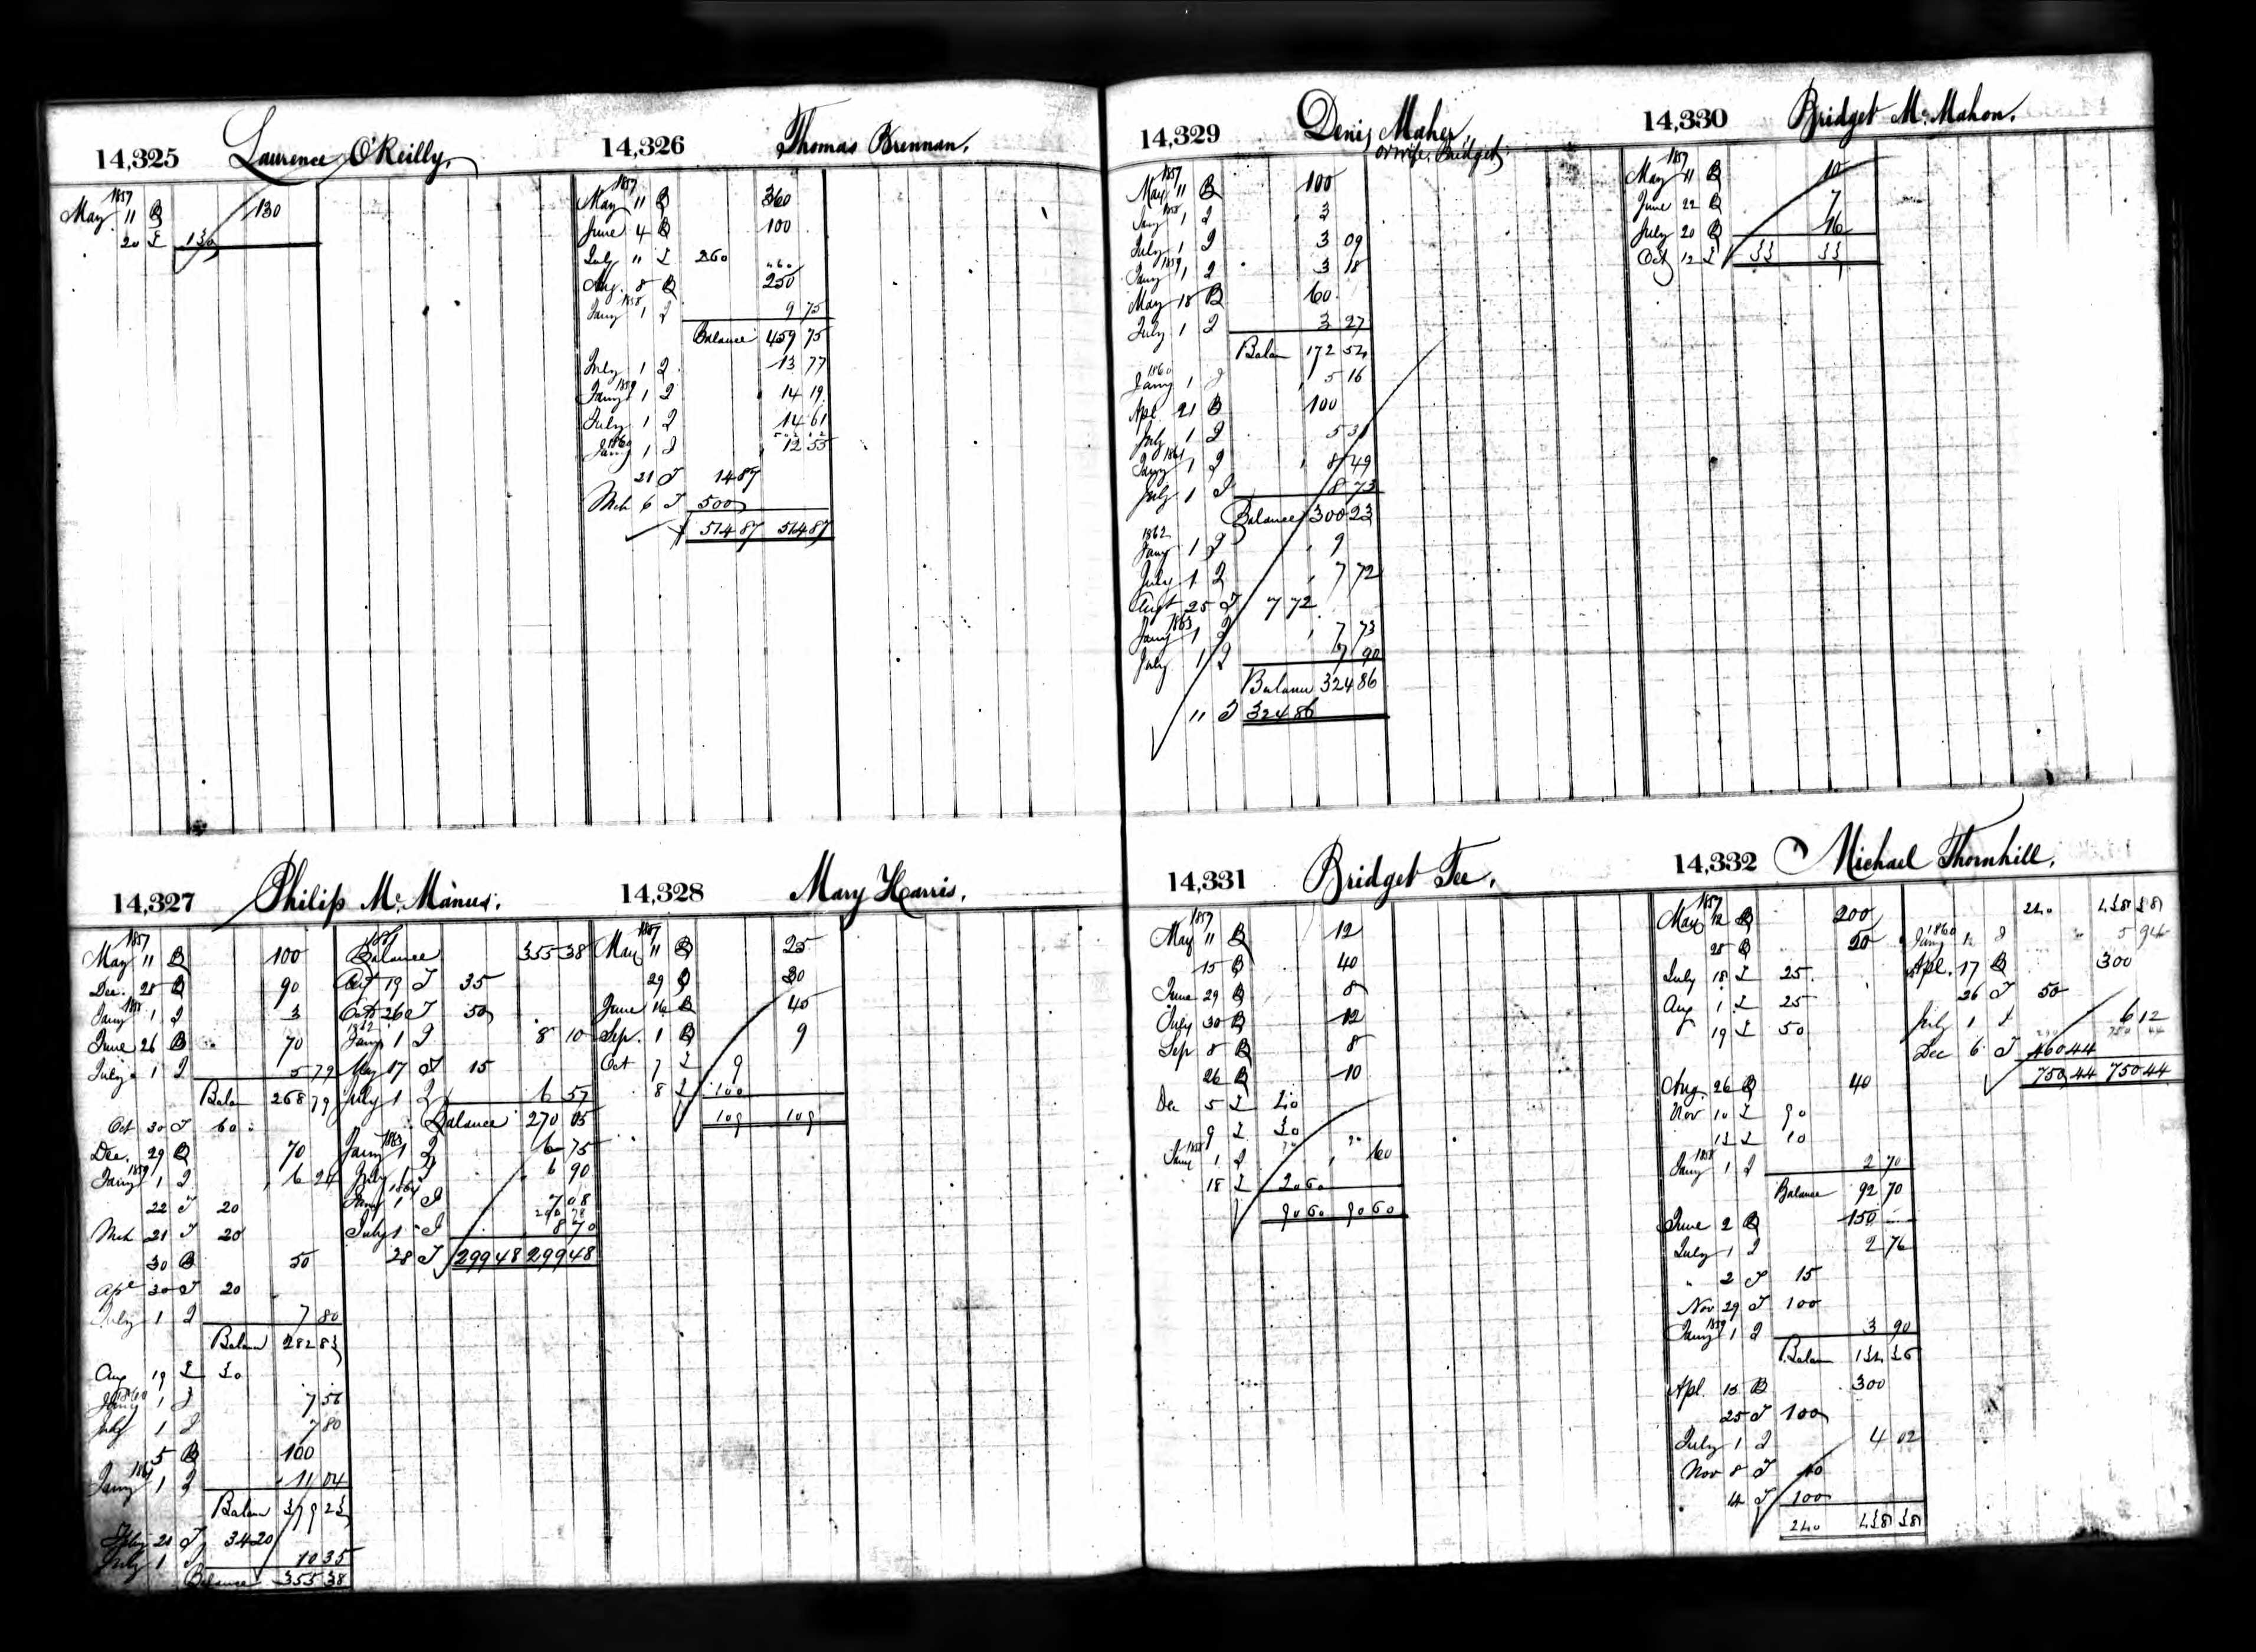 14,325 Laurence O'Reilly.
1857
May 11 B 130
20 L 130
14,326 Thomas Brennan.
1857
May 11 B 360
June 4 B 100
July 11 L 260
Aug. 8 B 250
1858
Jany 1 I 9 75
Balance 459 75
July 1 I 13 77
1859
Jany 1 I 14 19
July 1 I 14 61
1860
Jany 1 I 12 55
21 T 14 87
Mch 6 T 500
514 87 514 87
14,327 Philip McManus.
1857
May 11 B 100
Dec. 28 B 90
1858
Jany 1 I 3
June 26 B 70
July 1 I 5 79
Balan 268 79
Oct 30 T 60
Dec. 29 B 70
1859
Jany 1 I 6 24
22 T 20
Mch 21 T 20
30 B 50
Apl 30 T 20
July 1 I 7 80
Balan 282 83
Aug 19 L 30
1860
Jany 1 I 7 56
July 1 I 7 80
5 B 100
1861
Jany 1 I 11 04
Balan 379 23
21 T 34 20
July 1 I 10 35
Balance 355 38
1861
Balance 355 38
19 T 35
Oct 26 T 50
1862
Jany 1 I 8 10
May 17 T 15
July 1 I 6 57
Balance 270 05
1863
Jany 1 I 6 75
July 1 I 6 90
1864
Jany 1 I 7 08
290 78
July 1 I 8 70
28 T 299 48 299 48
14,328 Mary Harris.
1857
May 11 B 25
29 B 30
June 16 B 45
Sep. 1 B 9
Oct 7 L 9
8 L 100
109 109
14,329 Denis Maher,
or wife, Bridget
1857
May 11 B 100
1858
Jany 1 I 3
July 1 I 3 09
1859
Jany 1 I 3 18
May 18 B 60
July 1 I 3 27
Balan 172 54
1860
Jany 1 I 5 16
Apl 21 B 100
July 1 I 5 31
1861
Jany 1 I 8 49
July 1 I 8 73
Balance 300 23
1862
Jany 1 I 9
July 1 I 7 72
Augt 25 T 7 72
1863
Jany 1 I 7 73
July 1 I 7 90
Balance 324 86
11 T 324 86
14,330 Bridget McMahon.
1857
May 11 B 10
June 22 B 7
July 20 B 16
Oct 12 L 33 33
14,331 Bridget Fee.
1857
May 11 B 12
15 B 40
June 29 B 8
July 30 B 12
Sep 8 B 8
26 B 10
Dec 5 L 40
9 L 30
1858
Jany 1 I 60
18 L 20 60
90 60 90 60
14,332 Michael Thornhill.
1857
May 12 B 200
28 B 20
July 18 L 25
Aug 1 L 25
19 L 50
Aug. 26 B 40
Nov 10 L 90
13 L 10
1858
Jany 1 I 2 70
Balance 92 70
June 2 B 150
July 1 I 2 76
" 2 T 15
Nov 29 T 100
1859
Jany 1 I 3 90
Balan 134 36
Apl. 15 B 300
25 T 100
July 1 I 4 02
Nov 8 T 40
14 T 100
240 438 38
240 438 38
1860
Jany 1 I 5 94
Apl. 17 B 300
26 T 50
July 1 I 6 12
Dec 6 T 460 44
750 44 750 44